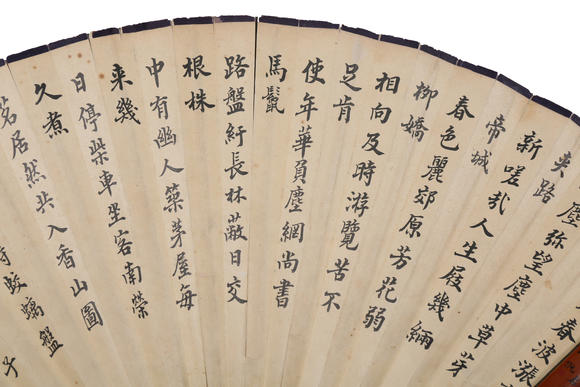 春波漲
夾路
塵弥望塵中草芽
新嗟哉人生屐幾緉
帝城
春色麗郊原芳花弱
柳嬌
相向及時游覽苦不
足肯
使年華負塵網尚書
馬鬣
路盤紆長林蔽日交
根株
中有幽人築茅屋每
来幾
日停柴車坐客南榮
久煮
茗居然共入香山圖
蛟螭盤
子